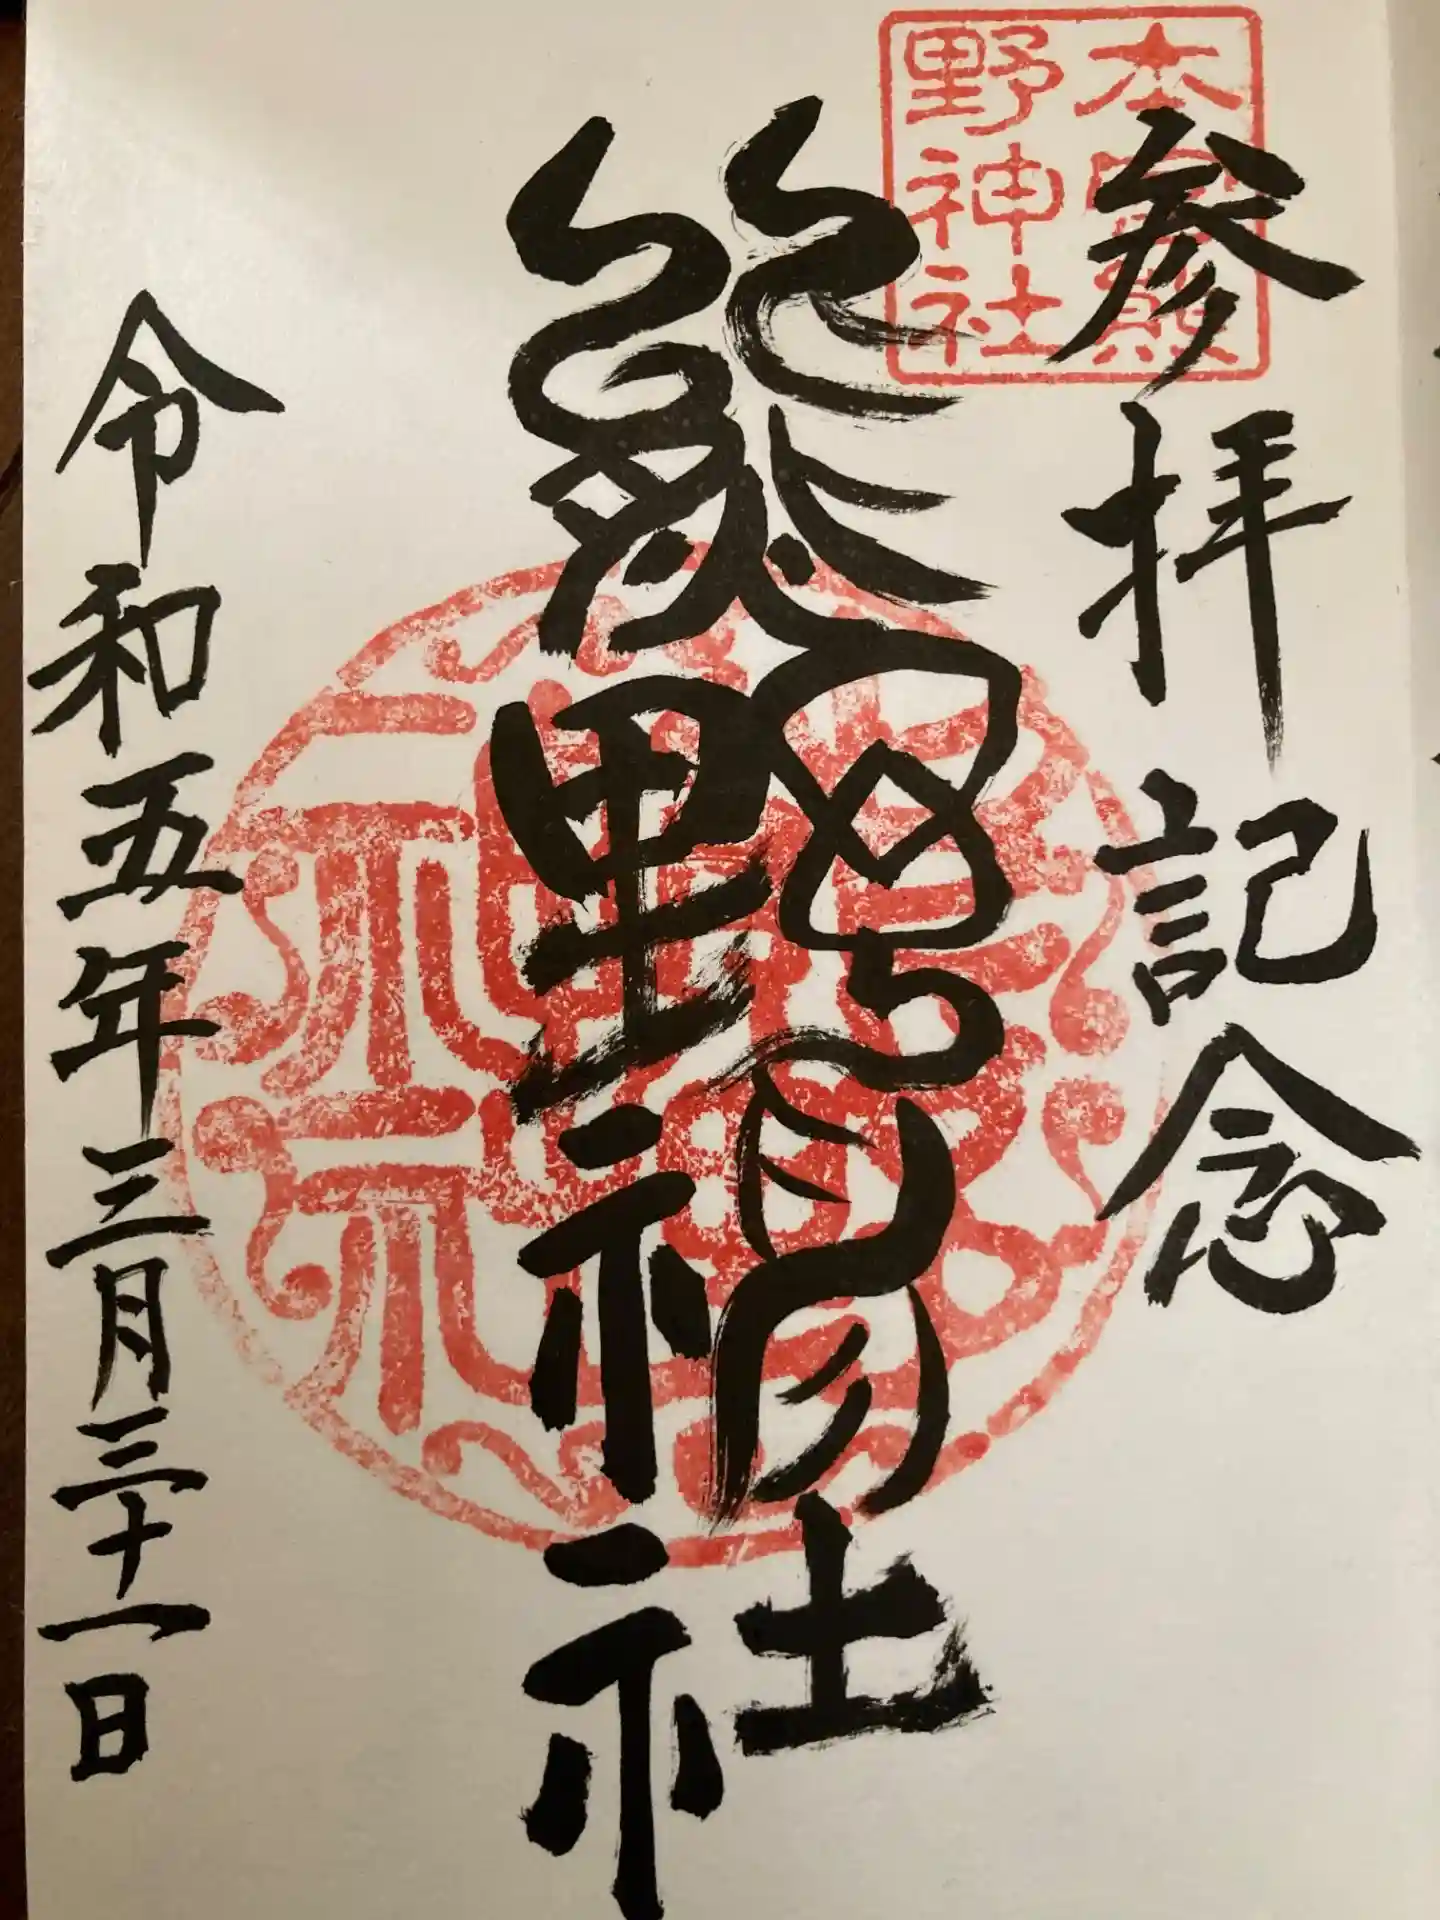 本宮熊
野神社
参拝記念
熊野神社
令和五年三月三十一日